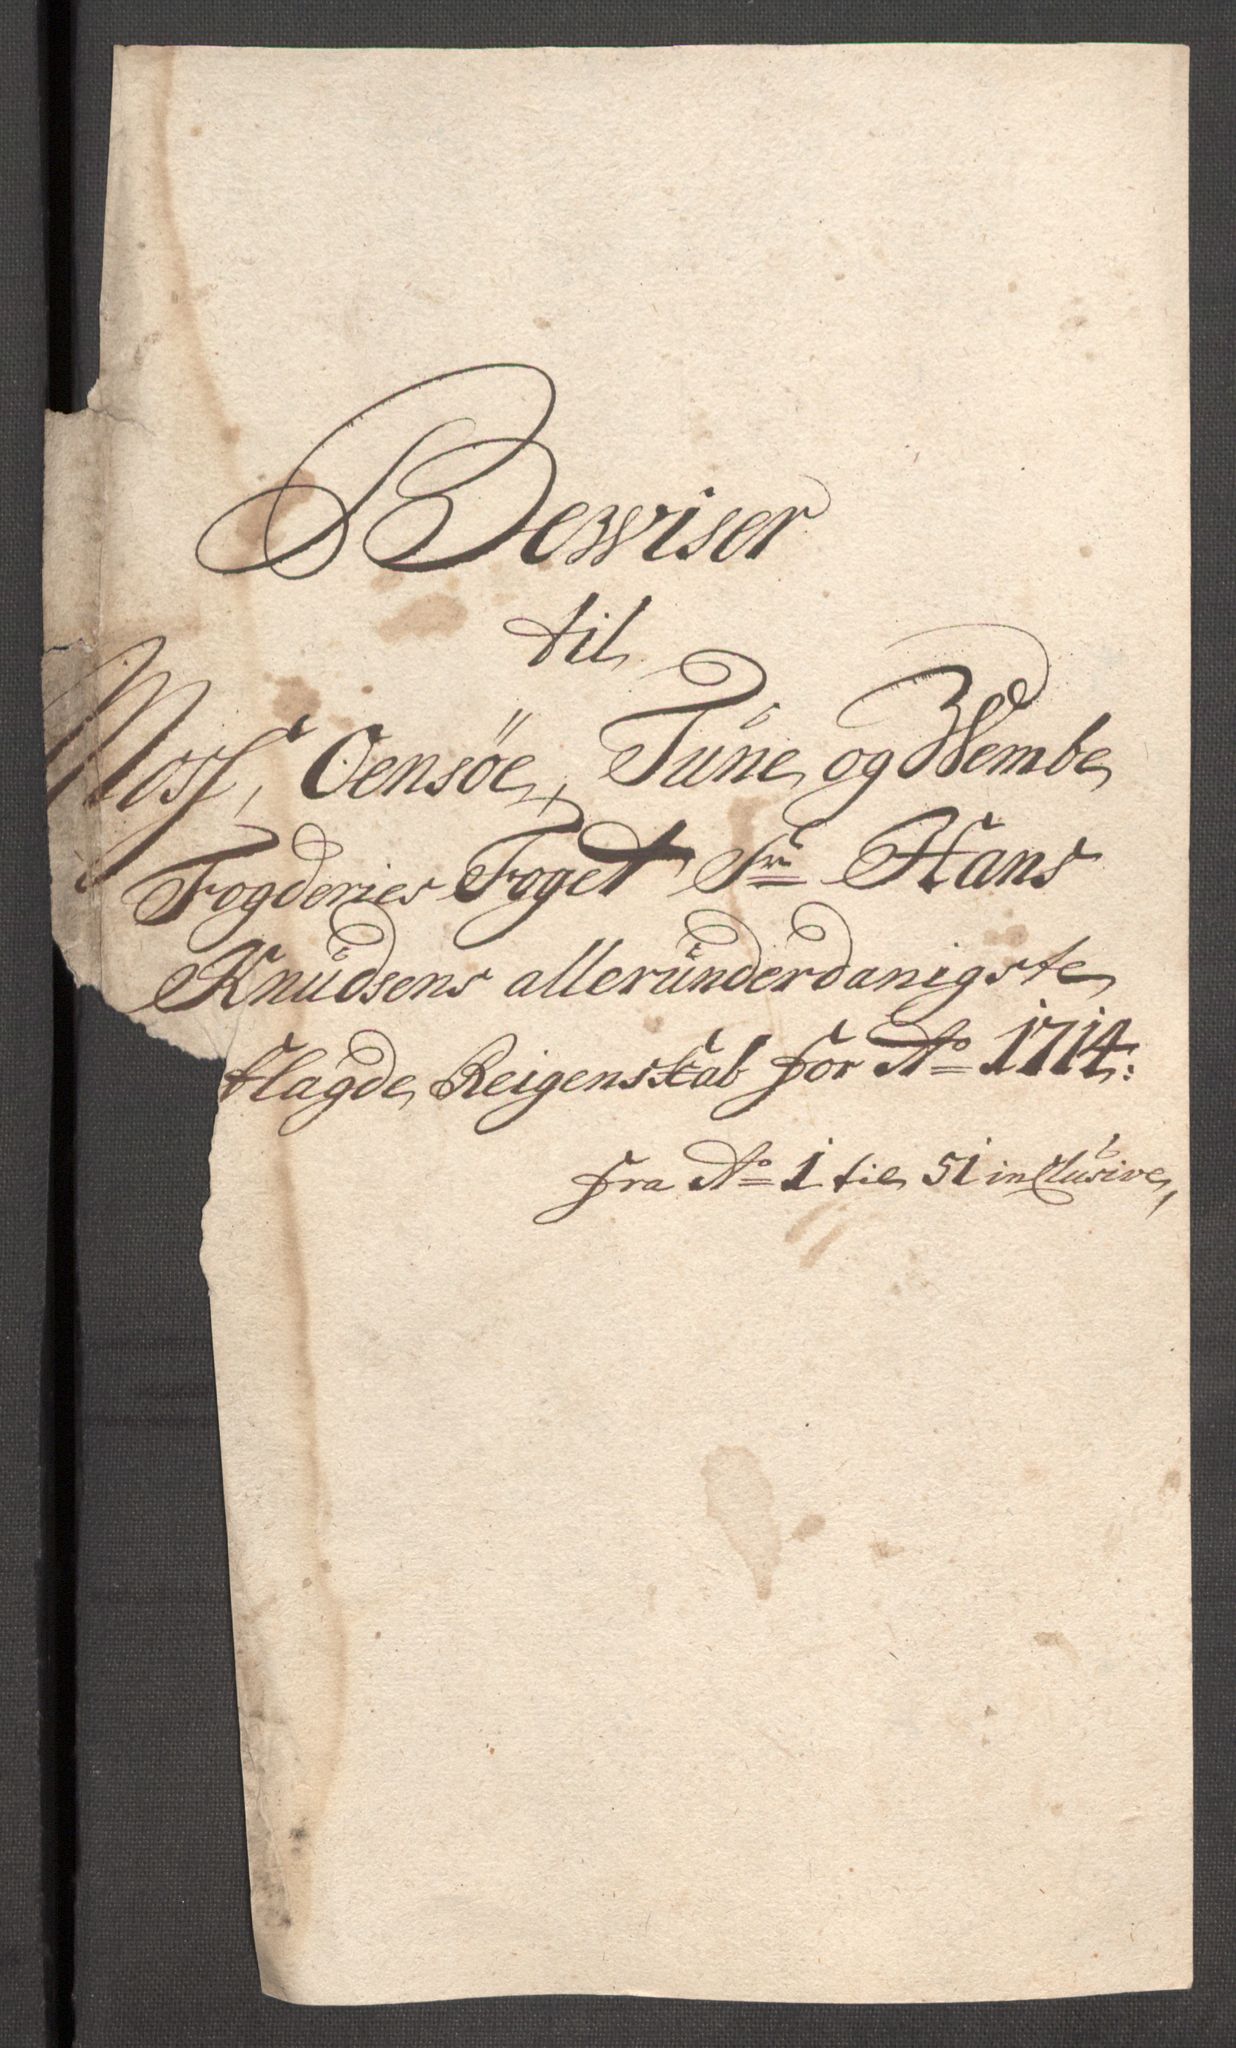 Bewiser
til
Moss, Oensöe, Tune, og Wembe
Fogderies Foget Sr Hans
Knudsens allerunderdanigste
aflagde Reigenskab for Ao 1714:
fra No 1 til 51 inclusive,